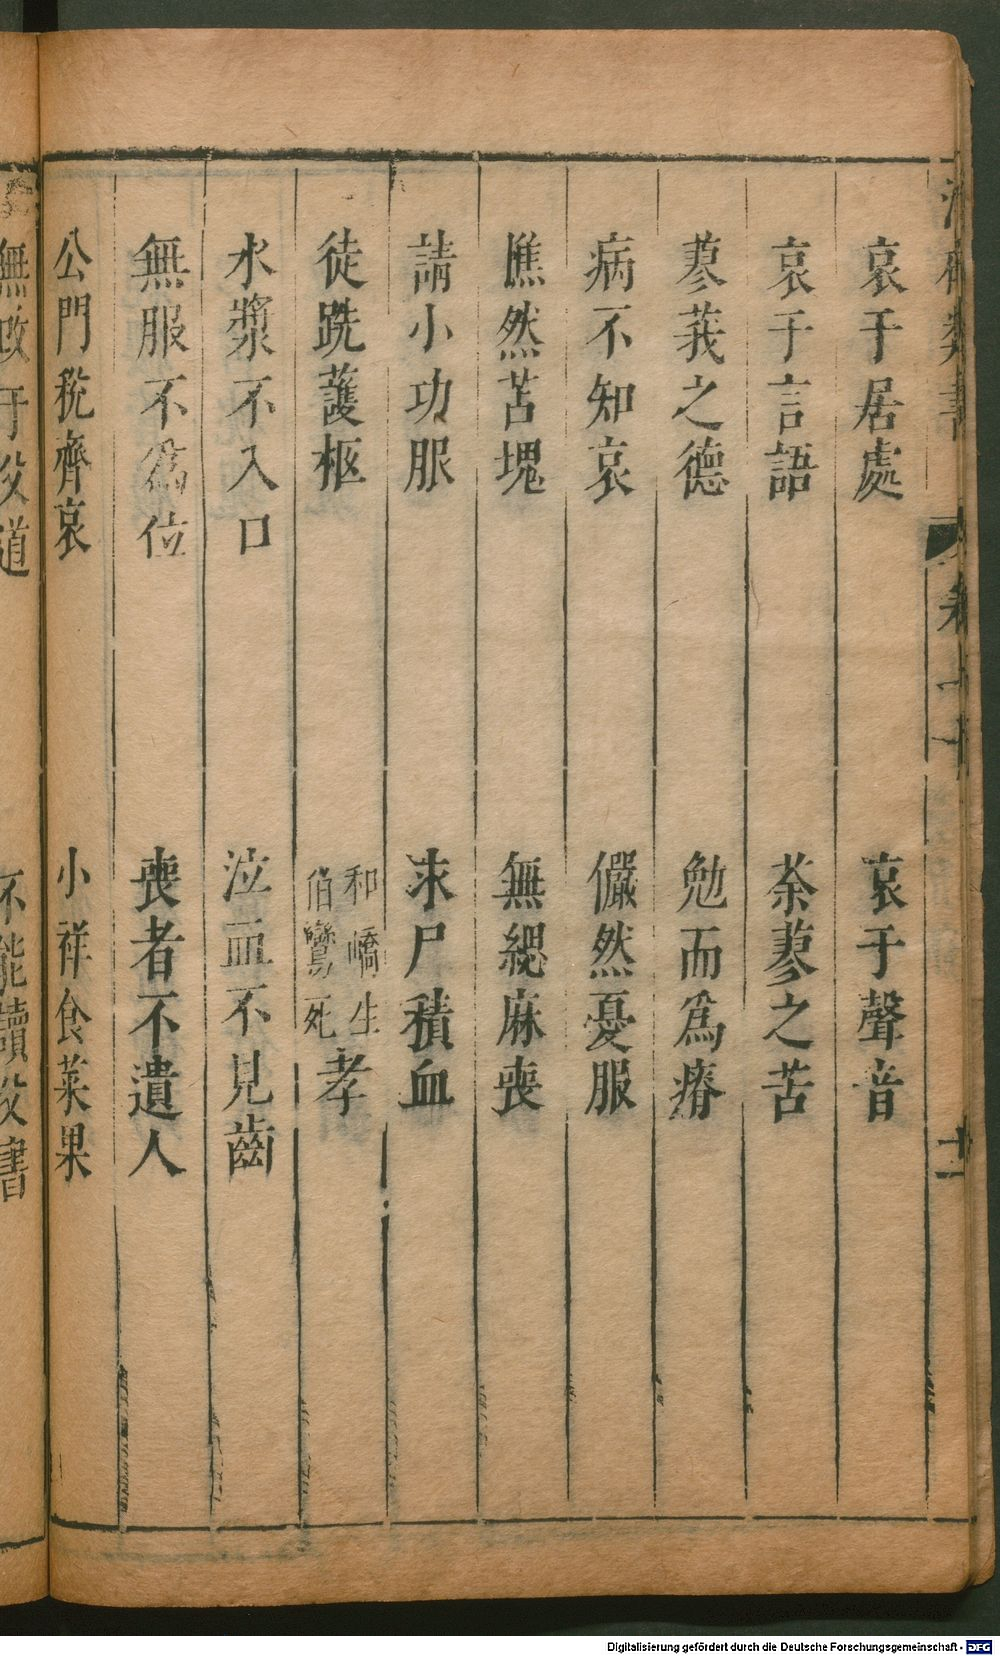 哀于居處 哀于聲音
哀于言語 荼蓼之苦
蓼莪之德 勉而爲瘠
病不知哀 儼然憂服
憔然苫塊 無緦麻喪
請小功服 求尸積血
徒跣護柩 和嶠生伯鸞死孝
水漿不入口 泣血不見齒
無服不爲位 喪者不遺人
公門稅齊哀 小祥食菜果
無改于父道 不能讀父書
卷十 十二
Digitalisierung gefördert durch die Deutsche Forschungsgemeinschaft - DFG